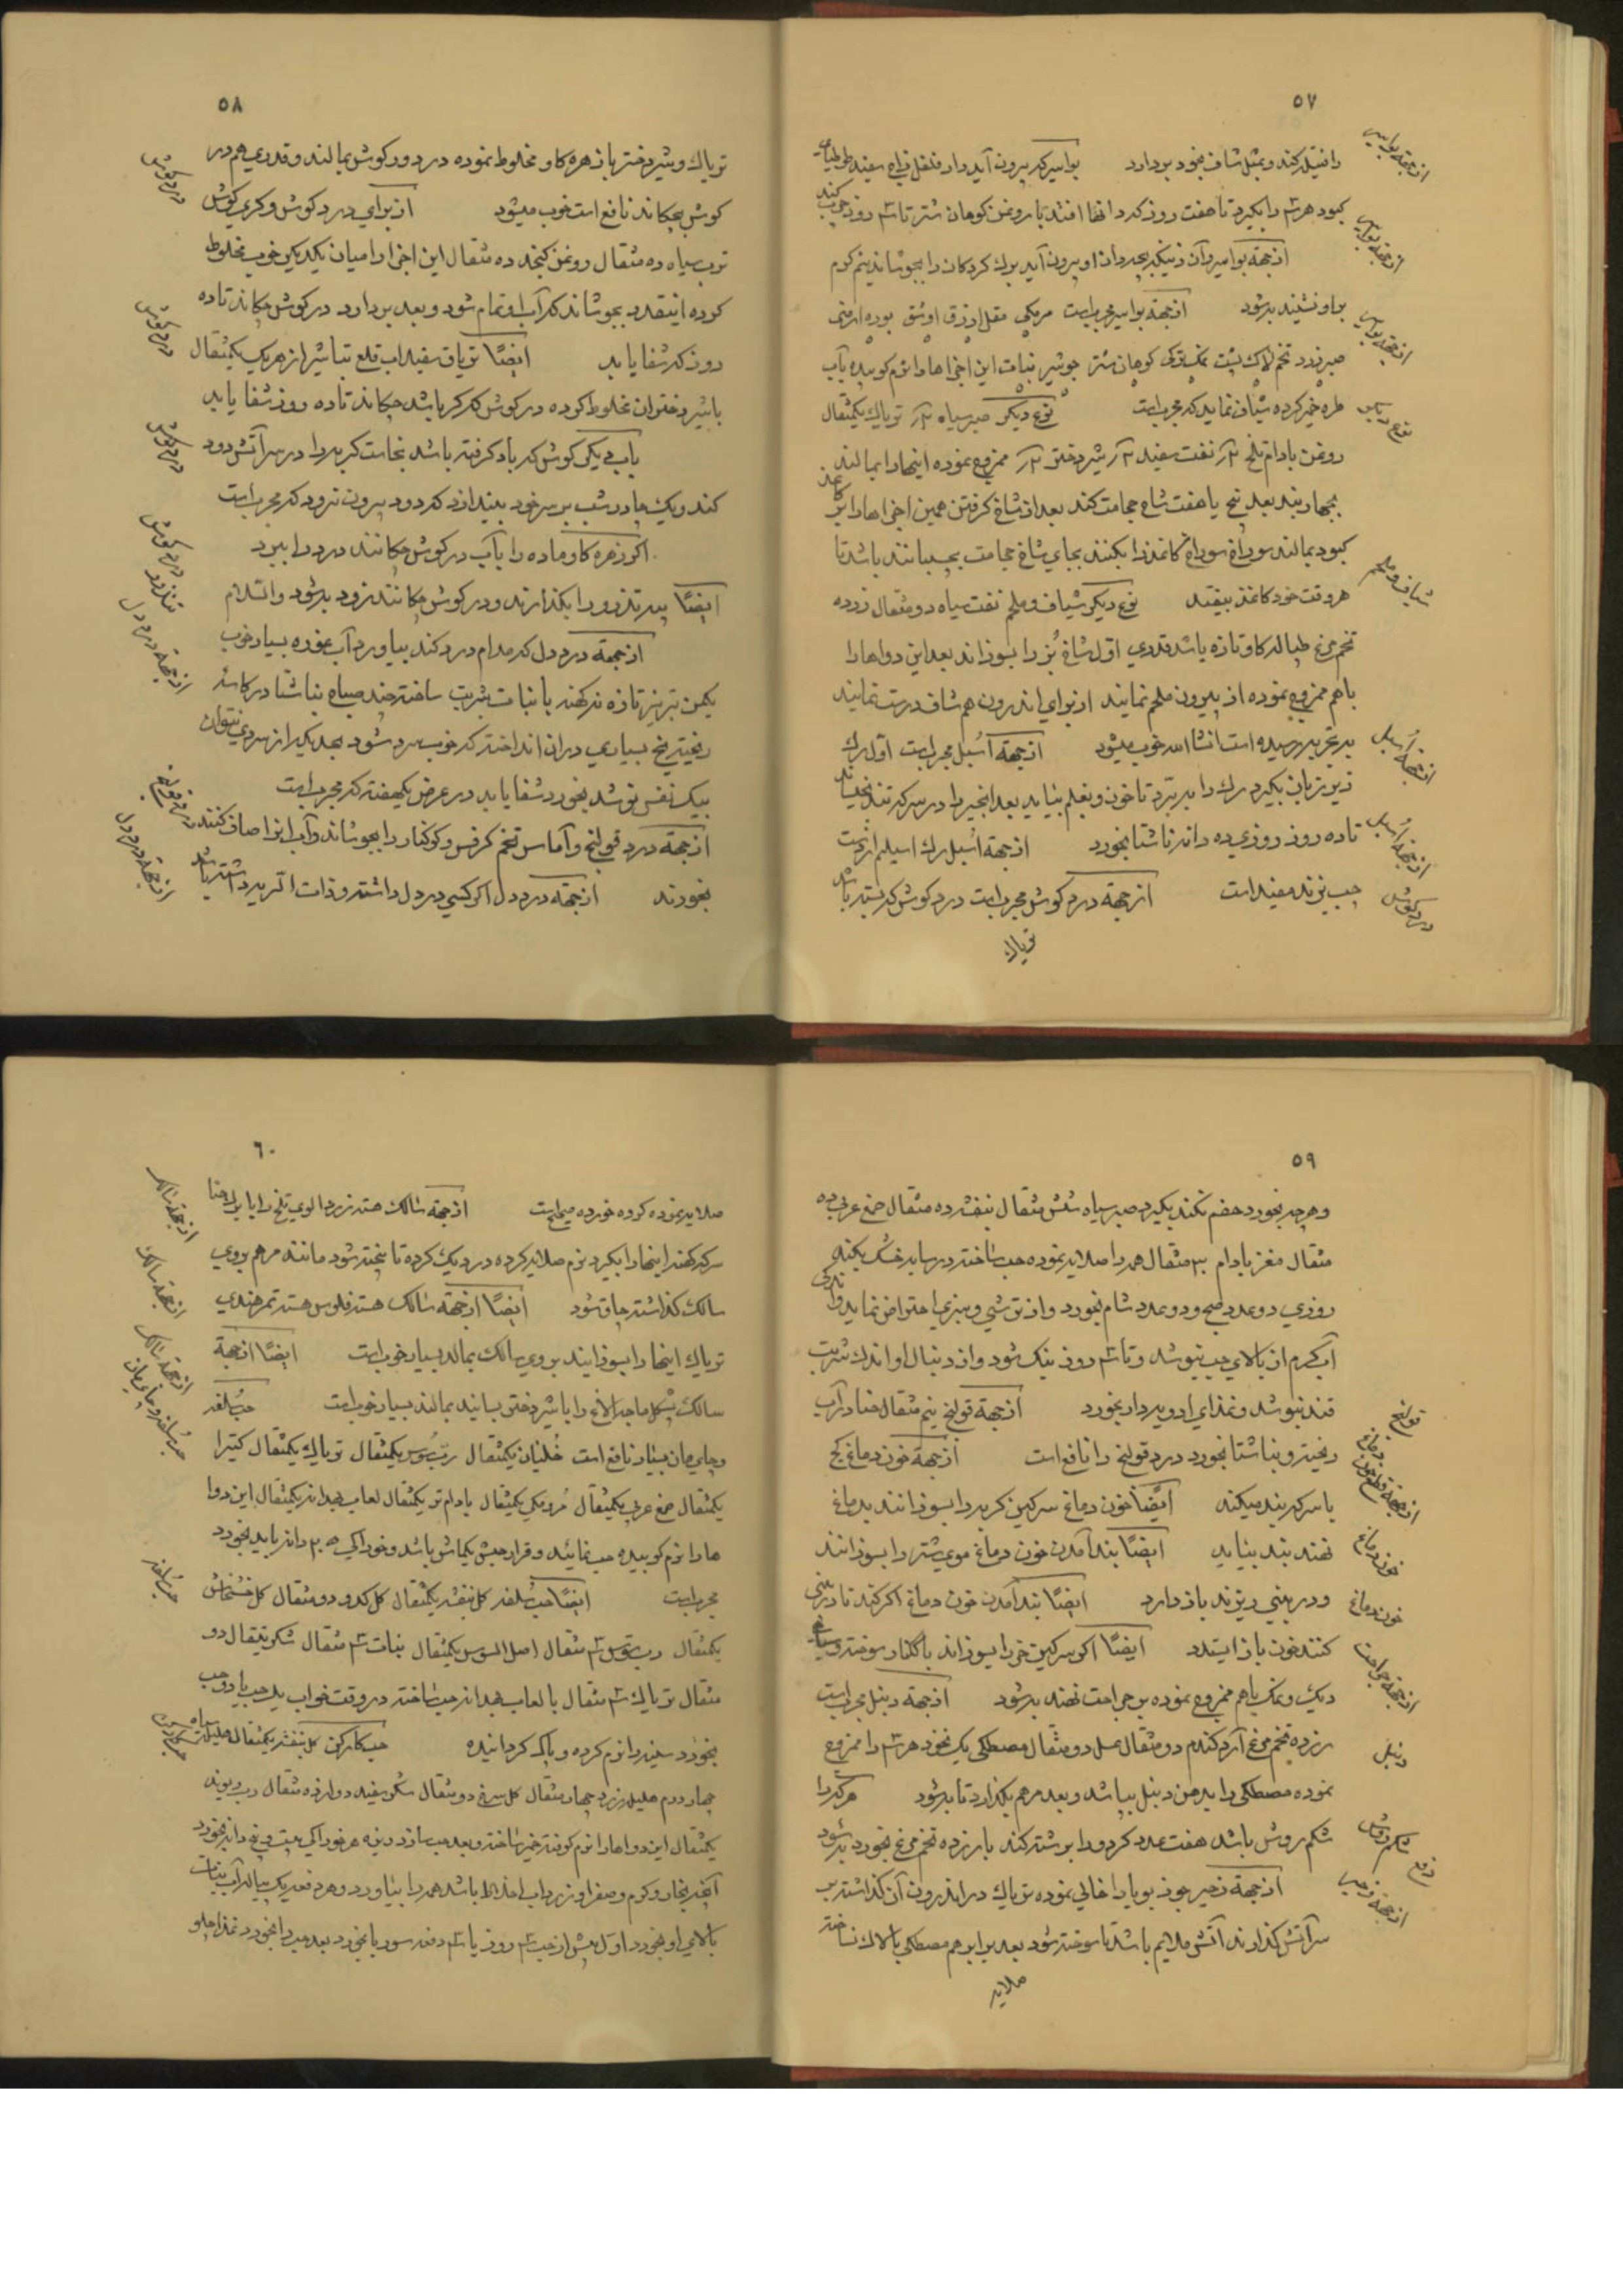 ٥٧
را فتیله کند و بمثل شاف بخود بردارد بواسیر که بیرون آید دارفلفل زاج سفید
کبود هر سه را بگیرد تا هفت روز که در انها افتد با روغن کوهان شتر تا سه روز چرب کند
ازجهة بواسیر آن زنیکه بچه‌دان او بیرون آید برك کردکان را بجوشاند نیم کرم
براو نشیند به شود ازجهة بواسیر مجربست مرمکی مقل ازرق اوشق بوره ارمنی
صبر زرد تخم لاك پشت نمك ترکی کوهان شتر جوشیر نبات این اجزاها را نرم کوبیده بآب
طره خمیر کرده شیاف نماید که مجربست نوع دیکر صبر سیاه تریاك یکمثقال
روغن بادام تلخ نفت سفید شیر دختر ممزوج نموده اینها را بمالند
بچهار بند بعد پنج یا هفت شاخ حجامت کند بعد از شاخ کرفتن همین اجزاها را بر کاغذ
کبود بمالند سوراخ سوراخ کاغذ را بکنند بجای شاخ حجامت بچسبانند باشد تا
هر وقت خود کاغذ بیفتد نوع دیکر شیاف و ملحم نفت سیاه دو مثقال زرده
تخم مرغ طپاله کاو تازه باشد قدری اول شاخ بُز را بسوزاند بعد این دواها را
باهم ممزوج نموده از بیرون ملحم نمایند از برای اندرون هم شاف درست نمایند
به تجربه رسیده است انشاالله خوب میشود ازجهة اُسبل مجربست اول رك
زیر زبان بگیرد رك را به برّد تا خون و بغلم بیاید بعد انجیر را در سرکه تند بخیساند
تا ده روز روزی ده دانه ناشتا بخورد ازجهة اُسبل رك اسیلم از دست
چپ بزند مفید است ازجهة درد کوش مجربست درد کوش که بسته باشد
تریاك
ازجهة بواسیر
ازجهة بواسیر
ازجهة بواسیر
شیاف و ملحم
ازجهة اُسبل
ازجهة اُسبل
درد کوش
٥٨
تریاك و شیر دختر با زهره کاو مخلوط نموده در دور کوش بمالند و قدری هم در
کوش بچکاند نافع است خوب میشود از برای درد کوش و کری کوش
ترب سیاه ده مثقال روغن کنجد ده مثقال این اجزا را میان یکدیکر خوب مخلوط
کرده اینقدر بجوشاند که آب او تمام شود و بعد بردارد در کوش چکاند تا ده
روز که شفا یابد ایضًا تریاق سفیداب قلع تباشیر از هریك یکمثقال
با شیر دختران مخلوط کرده در کوش که کر باشد چکاند تا ده روز شفا یابد
باب دیکر کوش که باد کرفته باشد نجاست کربه را در سر آتش دود
کند و یك چادر شب بر سر خود بیندازد که دود بیرون نرود که مجربست
اکر زهره کاو ماده را بآب در کوش چکانند درد را ببرد
ایضًا پیه تذرو را بکدازند و در کوش چکانند زود به شود والسّلام
ازجهة درد دل که مدام درد کند بیاورد آب غوره بسیار خوب
یکمن تبریز تازه نه کهنه با نبات شربت ساخته چند صباح بناشتا در کاسه
ریخته یخ بسیاری در ان انداخته که خوب سرد شود بحدیکه از سردی نتوان
بیك نفس نوشد بخورد شفا یابد در عرض یکهفته که مجربست
ازجهة درد قولنج و آماس تخم کرفس و کوکنار را بجوشاند و آب انرا صاف کنند
بخورند ازجهة درد دل اکر کسی درد دل داشته و ذات الریه داشته باشد
درد کوش
درد کوش
درد کوش
درد کوش
ازجهة درد دل
درد قولنج
ازجهة درد دل
٥٩
و هرچه بخورد هضم نکند بگیرد صبر سیاه شش مثقال بنفشه ده مثقال صمغ عربی ده
مثقال مغز بادام ٣٠ مثقال همه را صلایه نموده حب ساخته در سایه خشك بکند
روزی دو عدد صبح و دو عدد شام بخورد و از ترشی و سبزی احتراض نماید و اندکی
آب کرم از بالای حب بنوشد و تا سه روز نیك شود و از دنبال او اندك شربت
قند بنوشد و غذای ادویه دار بخورد ازجهة قولنج نیم مثقال حنا در آب
ریخته و بناشتا بخورد درد قولنج را نافع است ازجهة خون دماغ کچ
با سرکه بند میکند ایضًا خون دماغ سرکین کربه را بسوزانند بدماغ
نهند بند بیاید ایضًا بند آمدن خون دماغ موی شتر را بسوزانند
و در بینی ریزند باز دارد ایضًا بند آمدن خون دماغ اکر کند تا در بینی
کنند خون باز ایستد ایضًا اکر سرکین خر را بسوزاند با کلنار سوخته و سیاهی
دیك و نمك باهم ممزوج نموده بر جراحت نهند به شود ازجهة دنبل مجربست
زرده تخم مرغ آرد کندم دو مثقال عسل دو مثقال مصطکی یك نخود هر سه را ممزوج
نموده مصطکی را بدهن دنبل بپاشد و بعد مرهم بکذارد تا به شود هرکه را
شکم روش باشد هفت عدد کردو را برشته کند با زرده تخم مرغ بخورد به شود
ازجهة زحیر جوز بویا را خالی نموده تریاك در اندرون آن کذاشته بر
سر آتش کذارند آتش ملایم باشد تا سوخته شود بعد برابر هم مصطکی بالاك ساخته
صلایه
قولنج
خون دماغ
خون دماغ
ازجهة جراحت
دنبل
ازجهة زحیر
٦٠
صلایه نموده کرده خورده صحیحست ازجهة سالك هسته زردالوی تلخ را با برك حنا
سرکه کهنه اینها را بگیرد نرم صلایه کرده در دیك کرده تا پخته شود مانند مرهم بروی
سالك کذاشته چاق شود ایضًا ازجهة سالك هسته فلوس هسته تمرهندی
تریاك اینها را بسوزانند بروی سالك بمالد بسیار خوبست ایضًا ازجهة
سالك پشکل ماچه الاغ را با شیر دختر بسایند بمالند بسیار خوبست حب سُلفه
و چایمان بسیار نافع است خُلیان یکمثقال ربّ سُوس یکمثقال تریاك یکمثقال کتیرا
یکمثقال صمغ عربی یکمثقال مُرمکی یکمثقال بادام تر یکمثقال لعاب بهدانه یکمثقال این دوا
ها را نرم کوبیده حب نمائید و قرار حبش یکماش باشد و خوراکی دانه باید بخورد
مجربست ایضًا حب سُلفه کل بنفشه یکمثقال کل کدو دو مثقال کل خشخاش
یکمثقال رب سوس سه مثقال اصل السوس یکمثقال نبات سه مثقال شکر تیغال دو
مثقال تریاك سه مثقال با لعاب بهدانه حب ساخته در وقت خواب یك حب یا دو حب
بخورد سینه را نرم کرده و پاك کردانیده حب کارکن کل بنفشه یکمثقال هلیله سیاه
چهار درم هلیله زرد چهار مثقال کل سرخ دو مثقال شکر سفید دوازده مثقال رب ریوند
یکمثقال این دواها را نرم کوفته خمیر ساخته و بعد حب سازد و هر خوراکی بیست و پنج دانه بخورد
آنچه بخار و کرم و صفرا و زرداب اخلاط باشد همه را بیاورد و هر دفعه یك پیاله آب نبات
بالای او بخورد اول پیش از حب سه روز یا سه دفعه سوربا بخورد بعد حب را بخورد غذا چلو
ازجهة سالك
ازجهة سالك
ازجهة سالك
حب سلفه